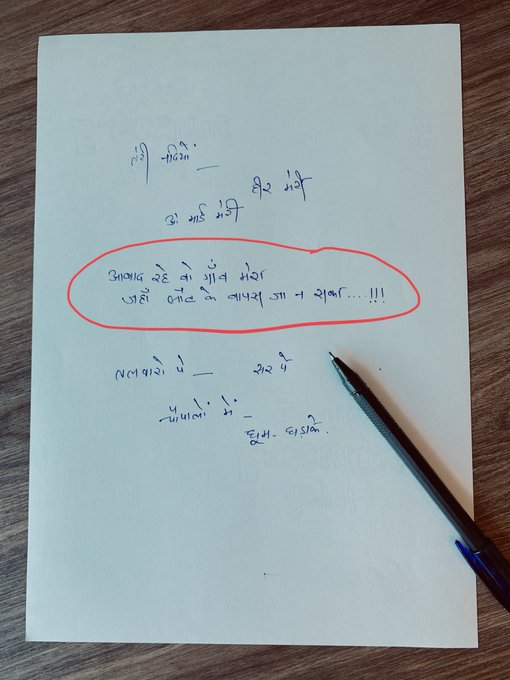 तेरी नदियों __
हीर मेरी
ओ माई मेरी
आबाद रहे वो गाँव मेरा
जहाँ लौट के वापस जा न सका....!!!
तलवारो पे __ सर पे
चौपालों में _
धूम-धड़ाके.